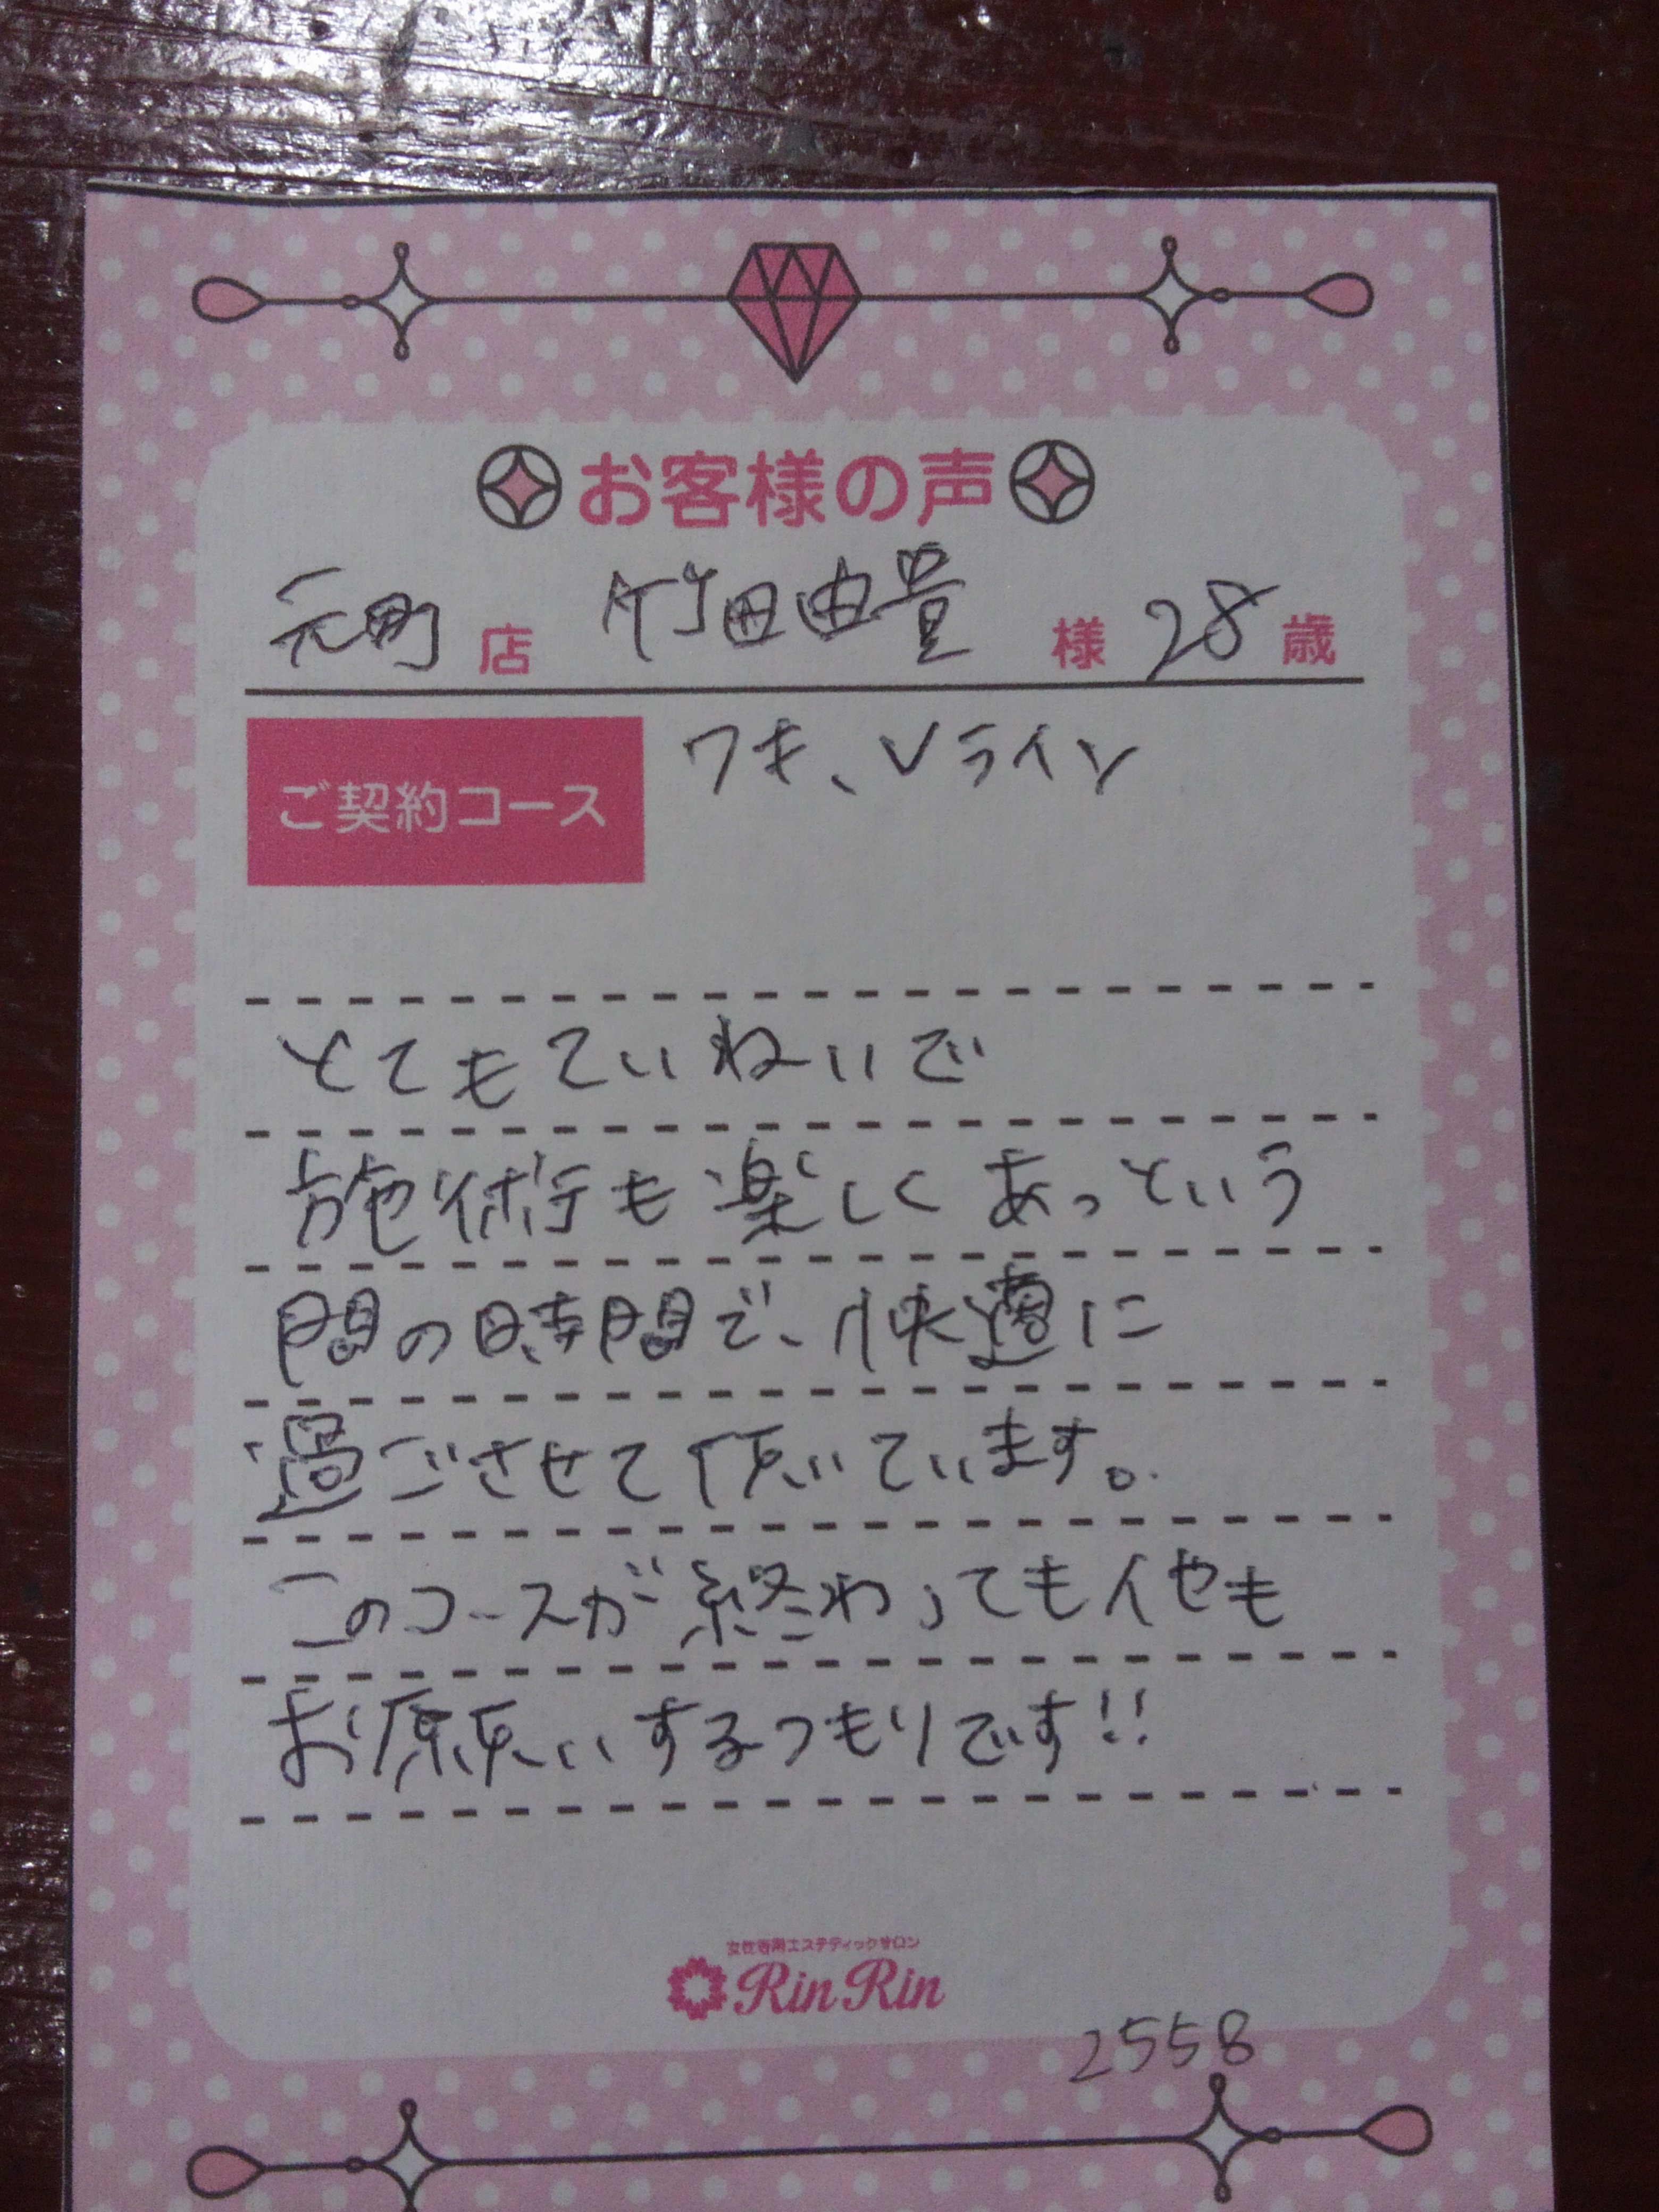 お客様の声
元町店 竹田由貴様 28歳
ご契約コース ワキ、Vライン
とてもていねいで
施術も楽しくあっという
間の時間で、快適に
過ごさせて頂いています。
このコースが終わっても他も
お願いするつもりです!!
女性専用エステティックサロン
RinRin
2558